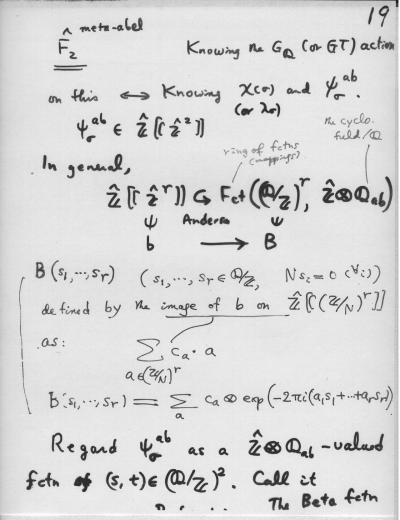 19
F̂₂ meta-abel
Knowing the G_Q (or GT) action
on this ↔ Knowing χ(σ) and ψ_σ^ab.
(or λσ)
ψ_σ^ab ∈ Ẑ[[Ẑ²]]
the cyclo.
field/Q
In general,
ring of fctns
(mappings)
Ẑ[[Ẑ^r]] ↪ Fct((Q/Z)^r, Ẑ⊗Q_ab)
Ψ Anderson Ψ
b → B
B(s₁,…,s_r) (s₁,…,s_r ∈ Q/Z, Ns_i = 0 (∀i))
defined by the image of b on Ẑ[[(Z/N)^r]]
as: Σ_{a∈(Z/N)^r} c_a · a
B(s₁,…,s_r) = Σ_a c_a ⊗ exp(−2πi(a₁s₁+…+a_r s_r))
Regard ψ_σ^ab as a Ẑ⊗Q_ab-valued
fctn of (s,t) ∈ (Q/Z)². Call it
The Beta fctn